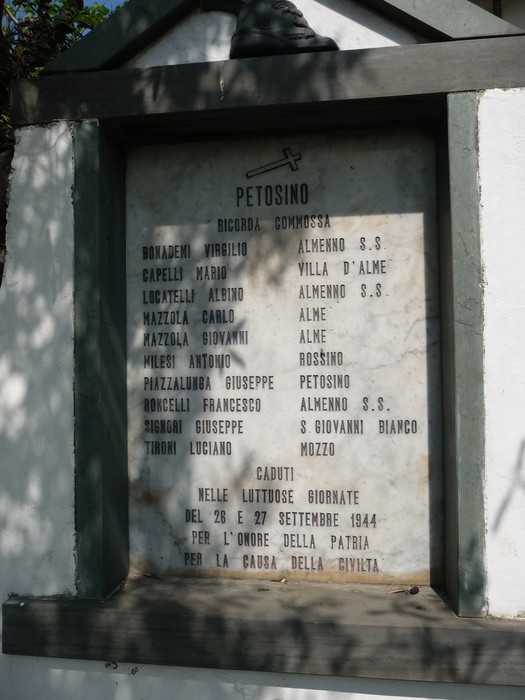 PETOSINO
RICORDA COMMOSSA
BONADEMI VIRGILIO ALMENNO S.S.
CAPELLI MARIO VILLA D'ALME
LOCATELLI ALBINO ALMENNO S.S.
MAZZOLA CARLO ALME
MAZZOLA GIOVANNI ALME
MILESI ANTONIO ROSSINO
PIAZZALUNGA GIUSEPPE PETOSINO
RONCELLI FRANCESCO ALMENNO S.S.
SIGNORI GIUSEPPE S. GIOVANNI BIANCO
TIRONI LUCIANO MOZZO
CADUTI
NELLE LUTTUOSE GIORNATE
DEL 26 E 27 SETTEMBRE 1944
PER L'ONORE DELLA PATRIA
PER LA CAUSA DELLA CIVILTA